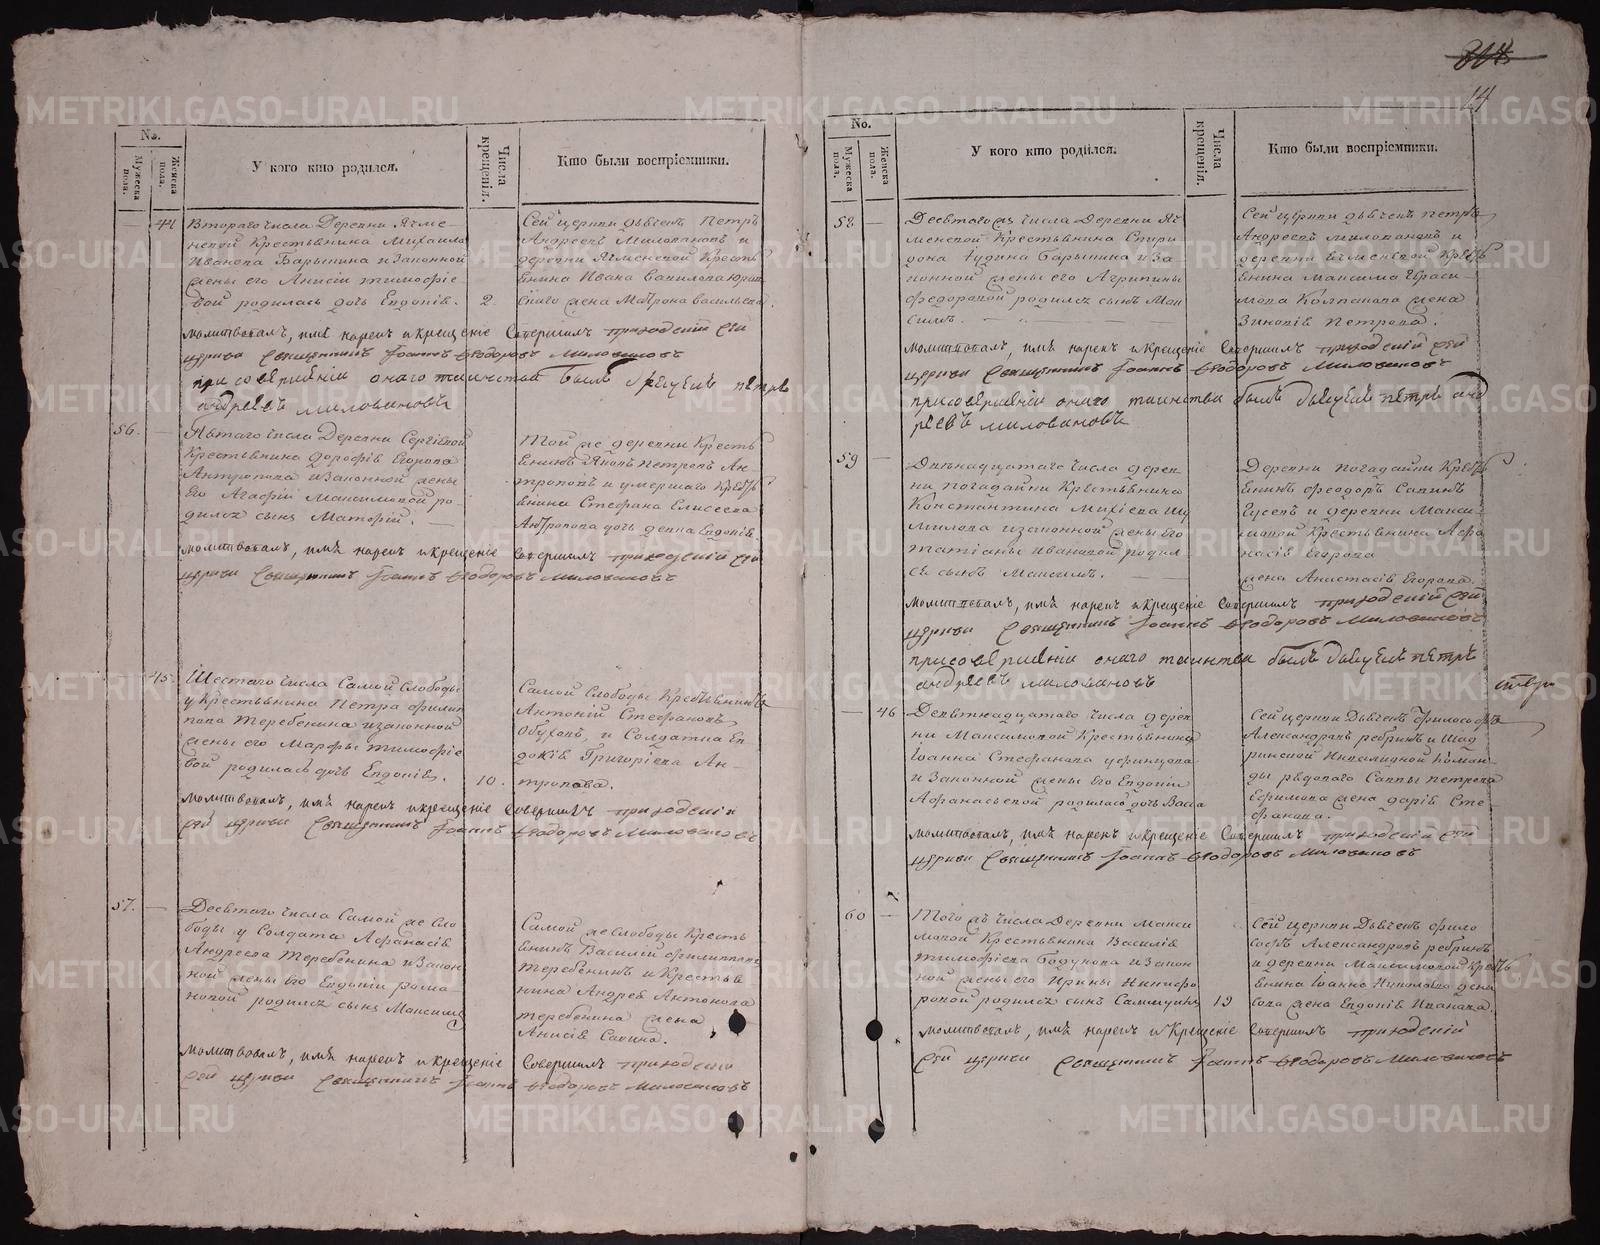 814
14
No.
Мужеска пола.
Женска пола.
У кого кто родился.
Числа крещенія.
Кто были воспріемники.
44
Втораго числа Деревни Ячме-
невой Крестьянина Михаила
Иванова Барышна и Законной
жены его Анисіи Тимофіе
вой родилась дочь Евдокія.
2.
Сей церкви дьячекъ Петръ
Андреевъ Миловановъ и
деревни Ячменевой Кресть
янина Ивана
жена Матрона Васильева.
молитвовалъ, имя нарекъ и Крещеніе Совершилъ приходскій сей
церкви Священникъ Іоаннъ Ѳеодоровъ Миловановъ
при совершеніи онаго таинства былъ дьячекъ Петръ
андреевъ миловановъ
56.
Пятаго числа Деревни Сергіевой
Крестьянина Дорофія Егорова
Антропова и Законной жены
его Агафіи Максимовой ро-
дился сынъ Матфій.
Той же деревни Кресть
янинъ Яковъ Петровъ Ан-
троповъ и умершаго Кресть
янина Стефана Елисеева
Антропова дочь девка Евдокія.
молитвовалъ, имя нарекъ и Крещеніе Совершилъ приходскій сей
церкви Священникъ Іоаннъ Ѳеодоровъ Миловановъ
45
Шестаго числа Самой Слободы
у Крестьянина Петра Филип
пова Теребенина и законной
жены его Марфы Тимофіе
вой родилась дочь Евдокія.
10.
Самой Слободы Крестьянинъ
Антоній Стефановъ
Обуховъ, и Солдатка Ев
докія Григоріева Ан-
тропова.
молитвовалъ, имя нарекъ и крещеніе Совершилъ приходскій
сей церкви Священникъ Іоаннъ Ѳеодоровъ Миловановъ
57.
Десятаго числа Самой же Сло
боды у Солдата Афанасія
Андреева Теребенина и Закон
ной жены его Евдокіи Рома
новой родился сынъ Максимъ
Самой же Слободы Кресть
янинъ Василій Филипповъ
Теребенинъ и Крестья
нина Андрея Антонова
Теребенина жена
Анисія Савина.
молитвовалъ, имя нарекъ и крещеніе Совершилъ приходскій
сей церкви Священникъ Іоаннъ Ѳеодоровъ Миловановъ
No.
Мужеска пола.
Женска пола.
У кого кто родился.
Числа крещенія.
Кто были воспріемники.
58.
Десятаго же числа Деревни Яч
меневой Крестьянина Спири
дона Іудина Барышна и За
конной жены его Агрипины
Федоровой родился сынъ Мак
симъ.
Сей церкви дьячекъ Петръ
Андреевъ Миловановъ и
деревни Ячменевской Кресть
янина Максима Гераси
мова Колпакова жена
Зиновія Петрова.
молитвовалъ, имя нарекъ и Крещеніе Совершилъ приходскій сей
церкви Священникъ Іоаннъ Ѳеодоровъ Миловановъ
при совершеніи онаго таинства былъ дьячекъ Петръ анд
реевъ миловановъ
59
числа дерев
ни Погадайки Крестьянина
Константина Михіева Шу
милова и законной жены его
Татіаны Ивановой родил
ся сынъ Максимъ.
Деревни Погадайки Кресть
янинъ Феодоръ Савинъ
Гусевъ и деревни Макси
мовой Крестьянина Афа
насія Егорова
жена Анастасія Егорова.
молитвовалъ, имя нарекъ и Крещеніе Совершилъ приходскій сей
церкви Священникъ Іоаннъ Ѳеодоровъ Миловановъ
при совершеніи онаго таинства былъ дьячекъ Петръ
андреевъ миловановъ
46
Девятнадцатаго числа дерев
ни Максимовой Крестьянина
Іоанна Стефанова Уфинцова
и Законной жены его Евдокіи
Афанасьевой родилась дочь Васса
Сей церкви Дьячекъ Филосовъ
Александровъ Ребринъ и Шад
ринской Инвалидной Коман
ды рядоваго Саввы Петрова
Ефимова жена Дарія Сте
фанова.
молитвовалъ, имя нарекъ и Крещеніе Совершилъ приходскій сей
церкви Священникъ Іоаннъ Ѳеодоровъ Миловановъ
60
Того жъ числа Деревни Макси
мовой Крестьянина Василія
Тимофіева Бодунова и Закон
ной жены его Ирины Никифо
ровой родился сынъ Самміунъ
19
Сей церкви Дьячекъ Фило
совъ Александровъ Ребринъ
и деревни Максимовой Кресть
янина Іоанна Дени
сова жена Евдокія Иванова.
молитвовалъ, имя нарекъ и Крещеніе Совершилъ приходскій
сей церкви Священникъ Іоаннъ Ѳеодоровъ Миловановъ
METRIKI.GASO-URAL.RU